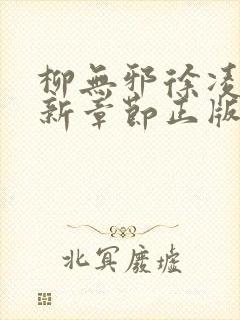 柳無邪徐凌
新章節正版
北冥廢墟